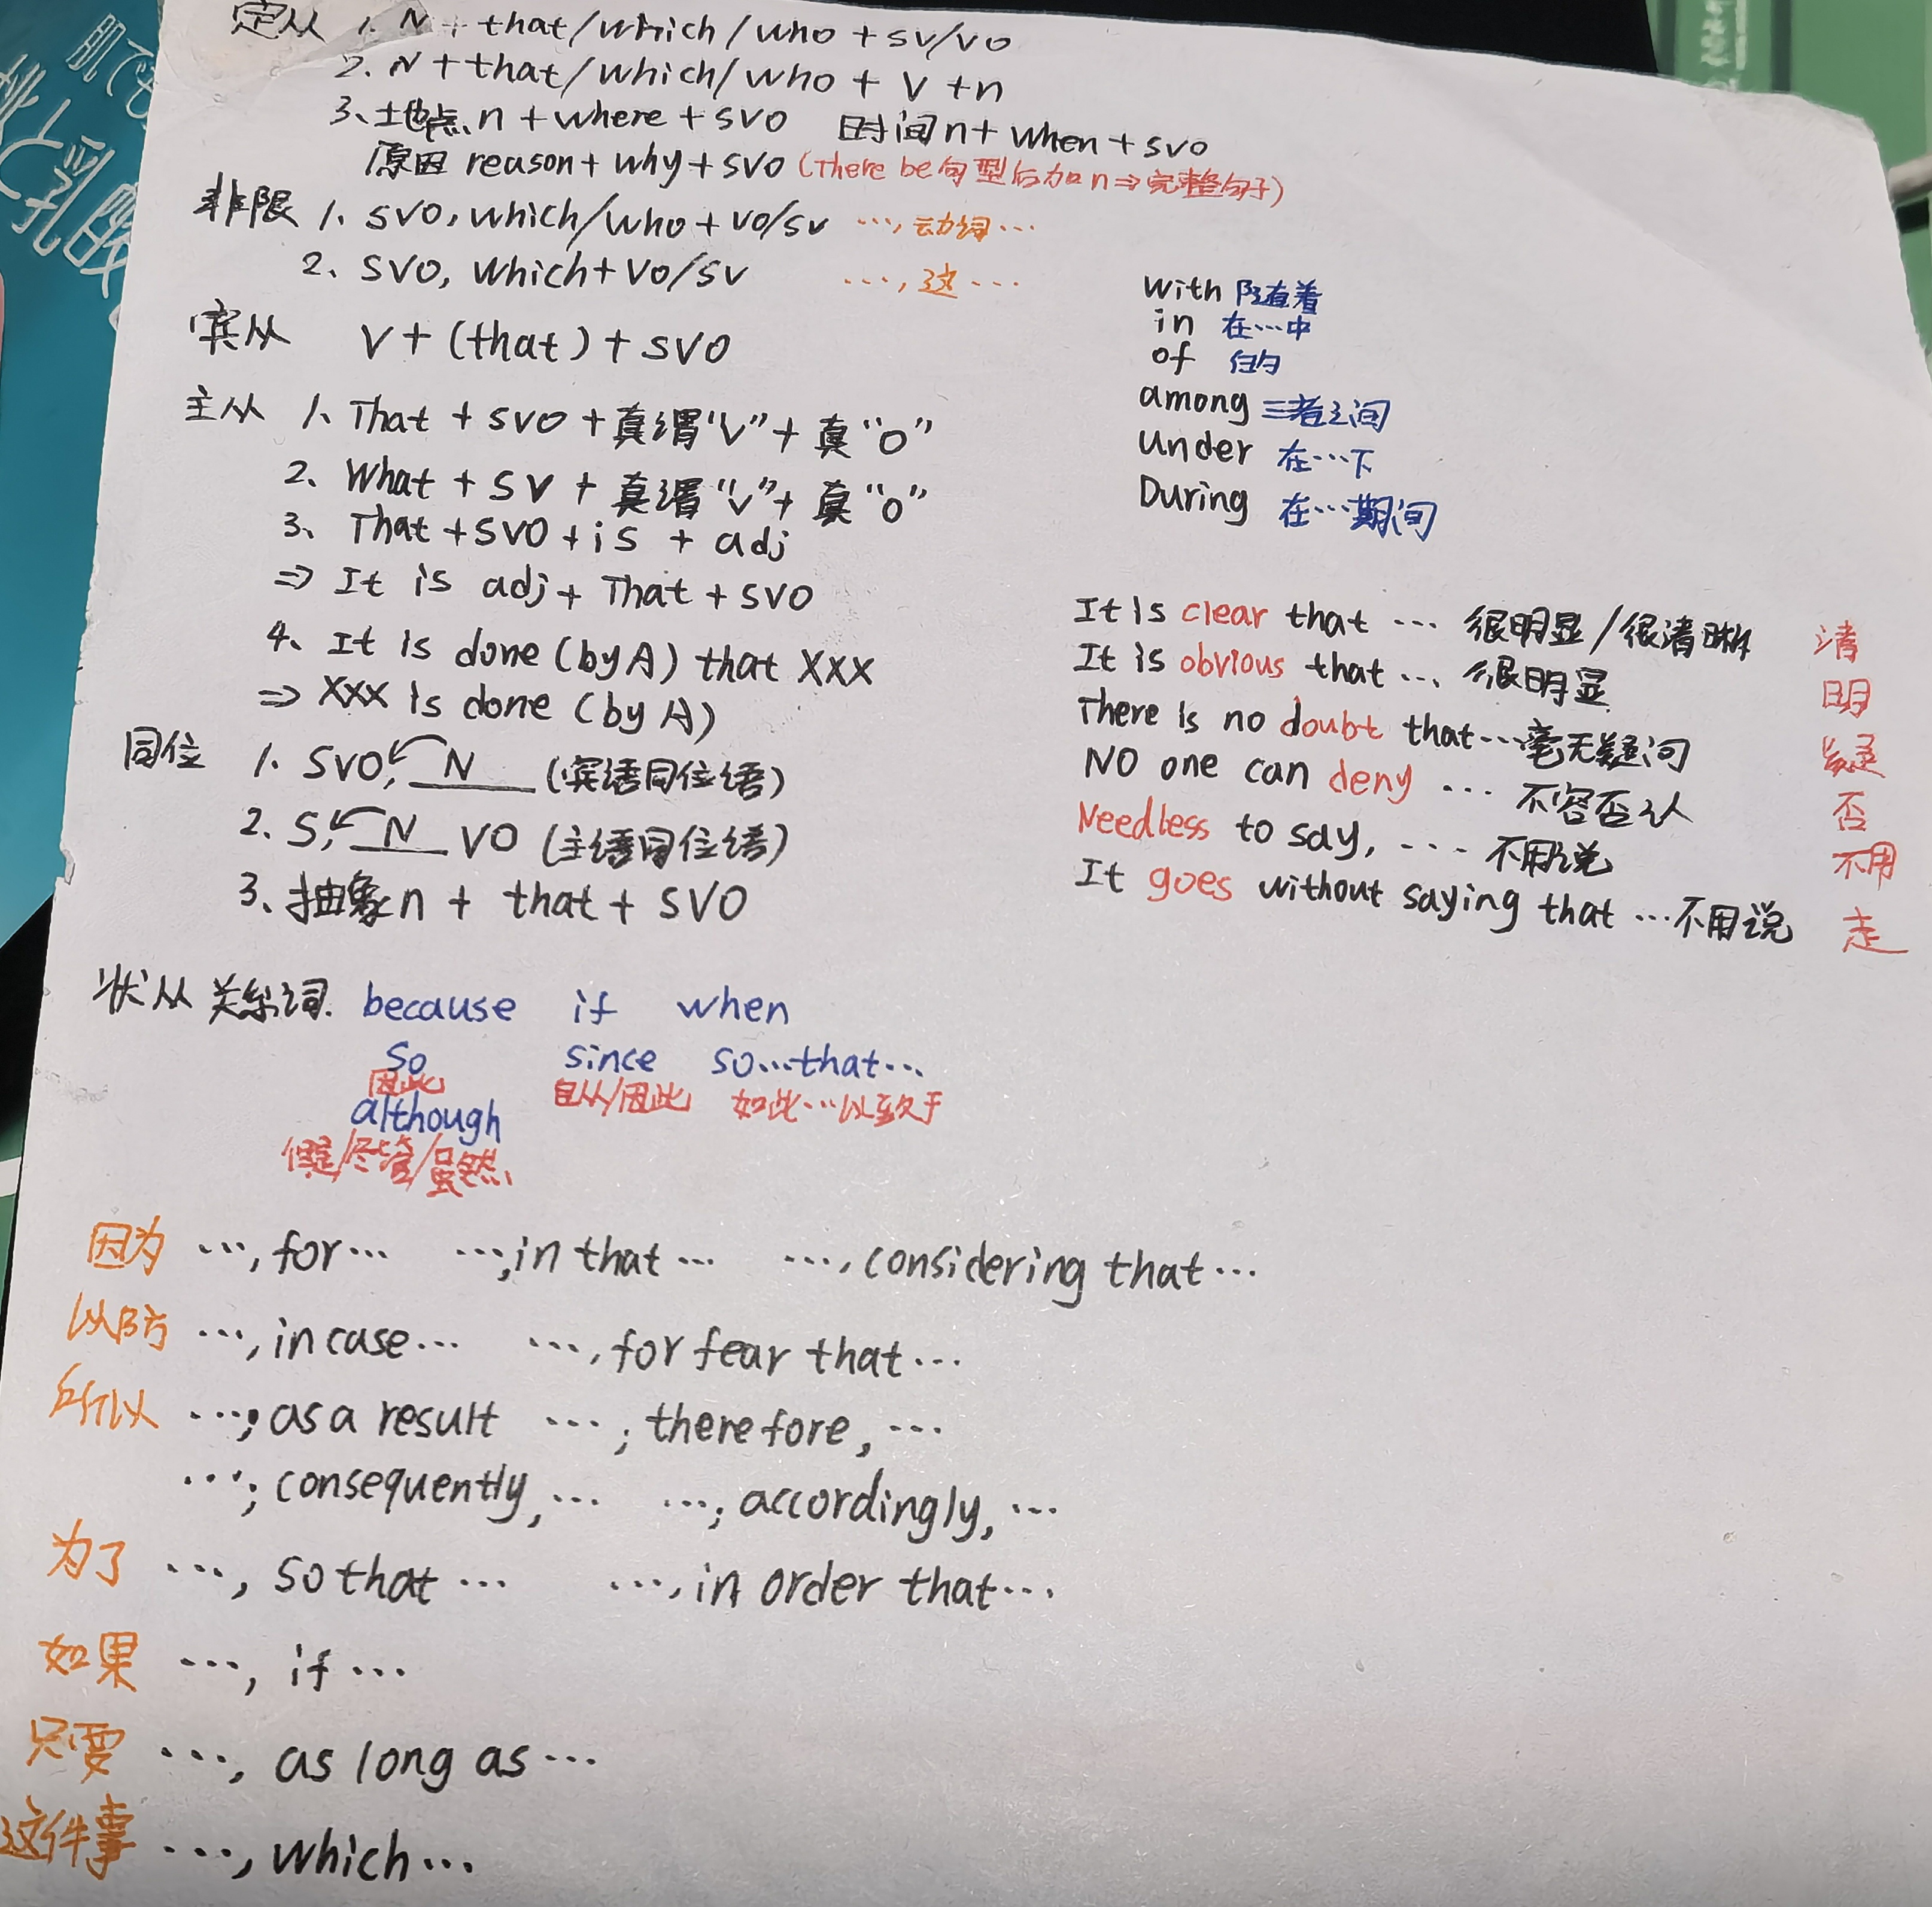 定从 1. N + that/which/who + sv/vo
2. N + that/which/who + V + n
3、地点 n + where + svo 时间 n + when + svo
原因 reason + why + svo (There be句型后加n⇒完整句子)
非限 1. svo, which/who + vo/sv …, 动词…
2. svo, which + vo/sv …, 这…
宾从 V + (that) + svo
主从 1. That + svo + 真谓"V" + 真"O"
2. What + sv + 真谓"V" + 真"O"
3、That + svo + is + adj
⇒ It is adj + That + svo
4、It is done (by A) that XXX
⇒ XXX is done (by A)
同位 1. SVO, N (宾语同位语)
2. S, N VO (主语同位语)
3、抽象n + that + SVO
with 随着
in 在…中
of 的
among 三者之间
under 在…下
During 在…期间
It is clear that … 很明显/很清晰 清
It is obvious that … 很明显 明
There is no doubt that…毫无疑问 疑
NO one can deny … 不容否认 否
Needless to say, … 不用说 不用
It goes without saying that …不用说 走
状从 关系词. because if when
so since so…that…
因此 自从/因此 如此…以致于
although
但是/尽管/虽然
因为 …, for… …, in that … …, considering that…
以防 …, in case… …, for fear that…
所以 …; as a result … ; therefore, …
…; consequently, … …; accordingly, …
为了 …, so that … …, in order that…
如果 …, if …
只要 …, as long as …
这件事 …, which…
肌
乳酸